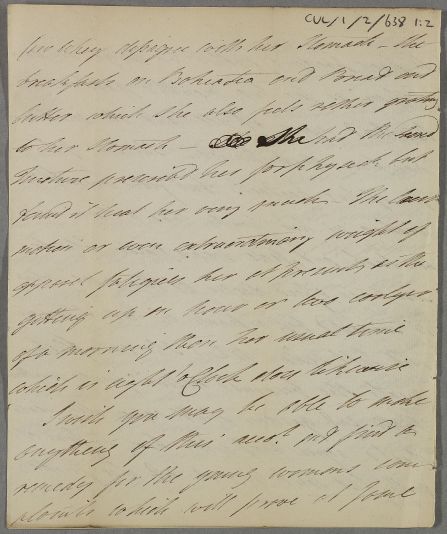 CUL/1/2/638 1:2
they disagree with her Stomach – She
breakfasts on Bohea tea and Bread and
butter which She also feels rather
to her Stomach – She had the
Tincture prescribed her for but
found it heat her very much – The
motion or even extraordinary weight of
apparel fatigues her at present as the
getting up an hour or two earlyer
of a morning than her usual time
which is eight o Clock does likewise
I wish you may be able to make
anything of this acct. and find a
remedy for the young womans com
plaints which will prove at some